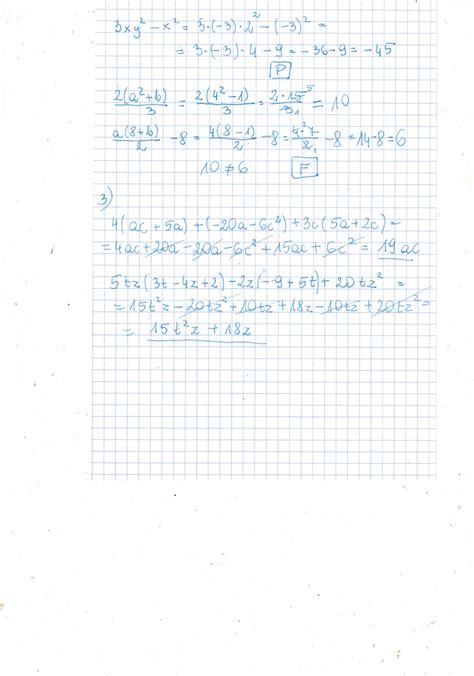 3xy² - x² = 3·(-3)·2² - (-3)² =
= 3·(-3)·4 - 9 = -36 - 9 = -45
P
2(a²+b)/3 = 2(4²-1)/3 = 2·15⁵/3₁ = 10
a(8+b)/2 - 8 = 4(8-1)/2 - 8 = 4²·7/2₁ - 8 = 14 - 8 = 6
10 ≠ 6 F
3)
4(ac + 5a) + (-20a - 6c²) + 3c(5a + 2c) =
= 4ac + 20a - 20a - 6c² + 15ac + 6c² = 19ac
5tz(3t - 4z + 2) - 2z(-9 + 5t) + 20tz² =
= 15t²z - 20tz² + 10tz + 18z - 10tz + 20tz² =
= 15t²z + 18z